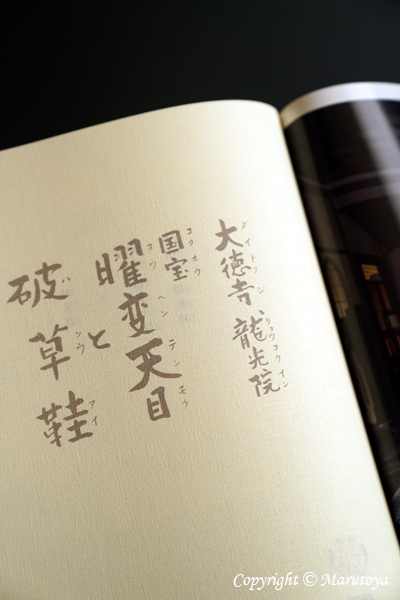 大徳寺 龍光院
国宝
曜変天目
と
破草鞋
Copyright © Marutoya